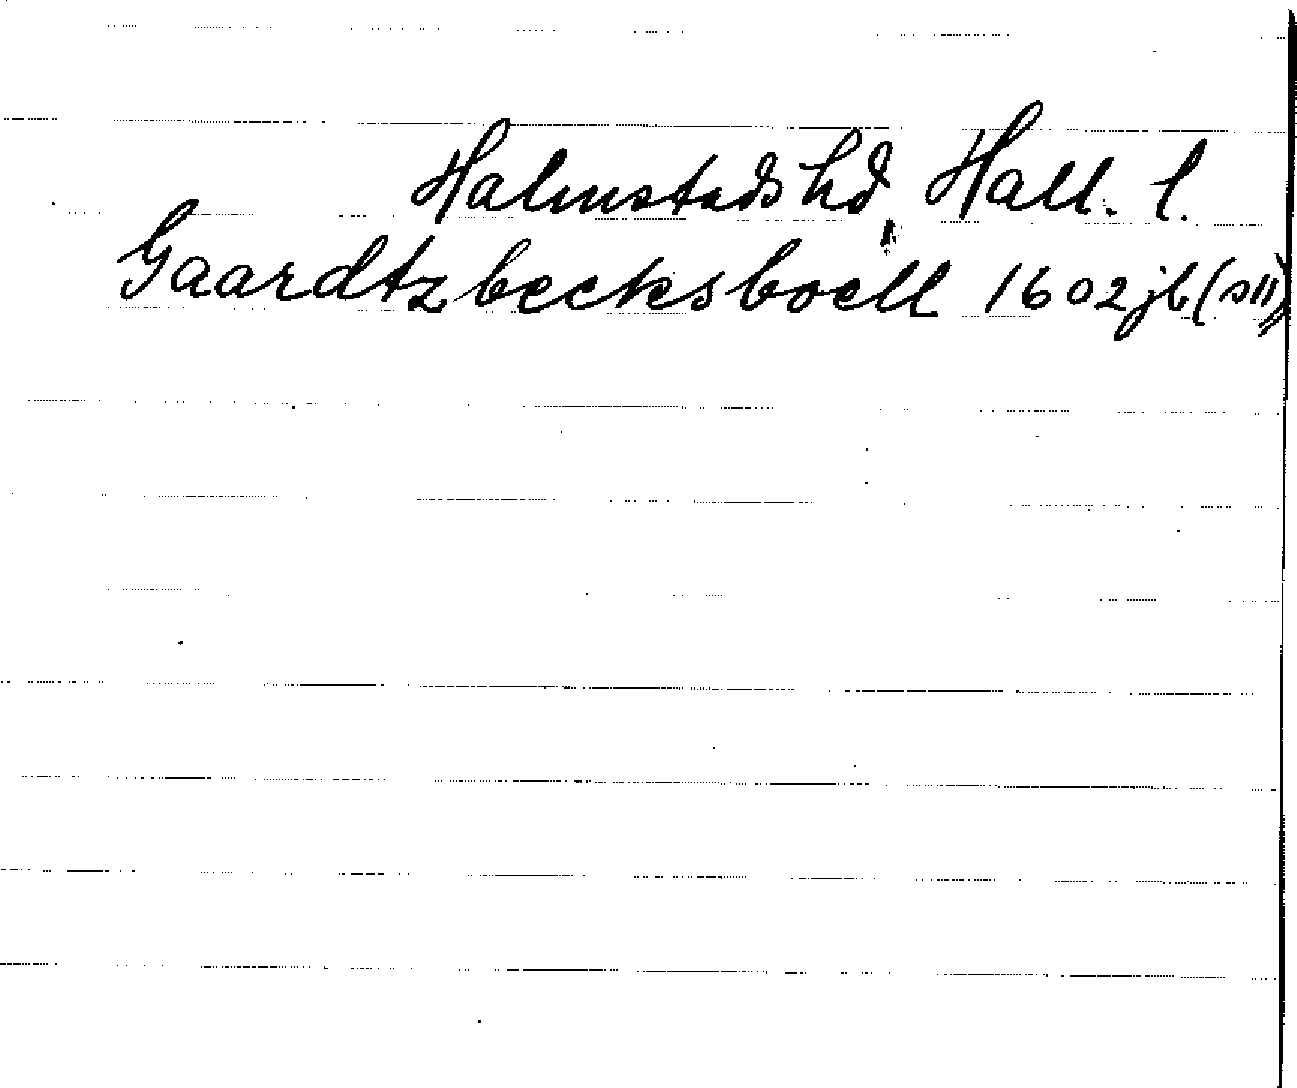 Halmstads hd Hall. l.
Gaardtzbecksboell 1602 jb (s 11)